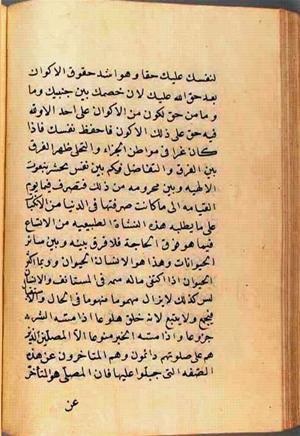 لنفسك عليك حقا وهو اشد حقوق الاكوان
بعد حق الله عليك لان خصمك بين جنبيك وما
وما من حق لكون من الاكوان على احد الا ولله
فيه حق على ذلك الاكون فاحفظ نفسك فاذا
كان غدا فى مواطن الجزاء والتجلى ظهر الفرق
بين الفرق والتفاضل فكم بين نفس محشر بنعوت
الالهيه وبين محرومه من ذلك فتصرف فيها يوم
القيامه الى ما كانت صرفتها فى الدنيا من الاكباب
على ما يطلبه هذه النشاة الطبيعيه من الاتساع
فيما هو فوق الحاجة فلا فرق بينه وبين سائر
الحيوانات وهذا هو الانسان الحيوان ووما اكثر
الحيوان اذا اكتفى ماله سهم فى المستانف والانسان
ليس كذلك لا يزال مهموما منهوما فى الحال والاستقبال
فيجمع ولا يشبع لانه خلق هلوعا اذا مسته الشره
جزوعا واذا مسته الخير منوعا الا المصلين الذين
هم على صلوتهم دائمون وهم المتاخرون عن هذه
الصفه التى جبلوا عليها فان المصلى هو المتأخر
عن